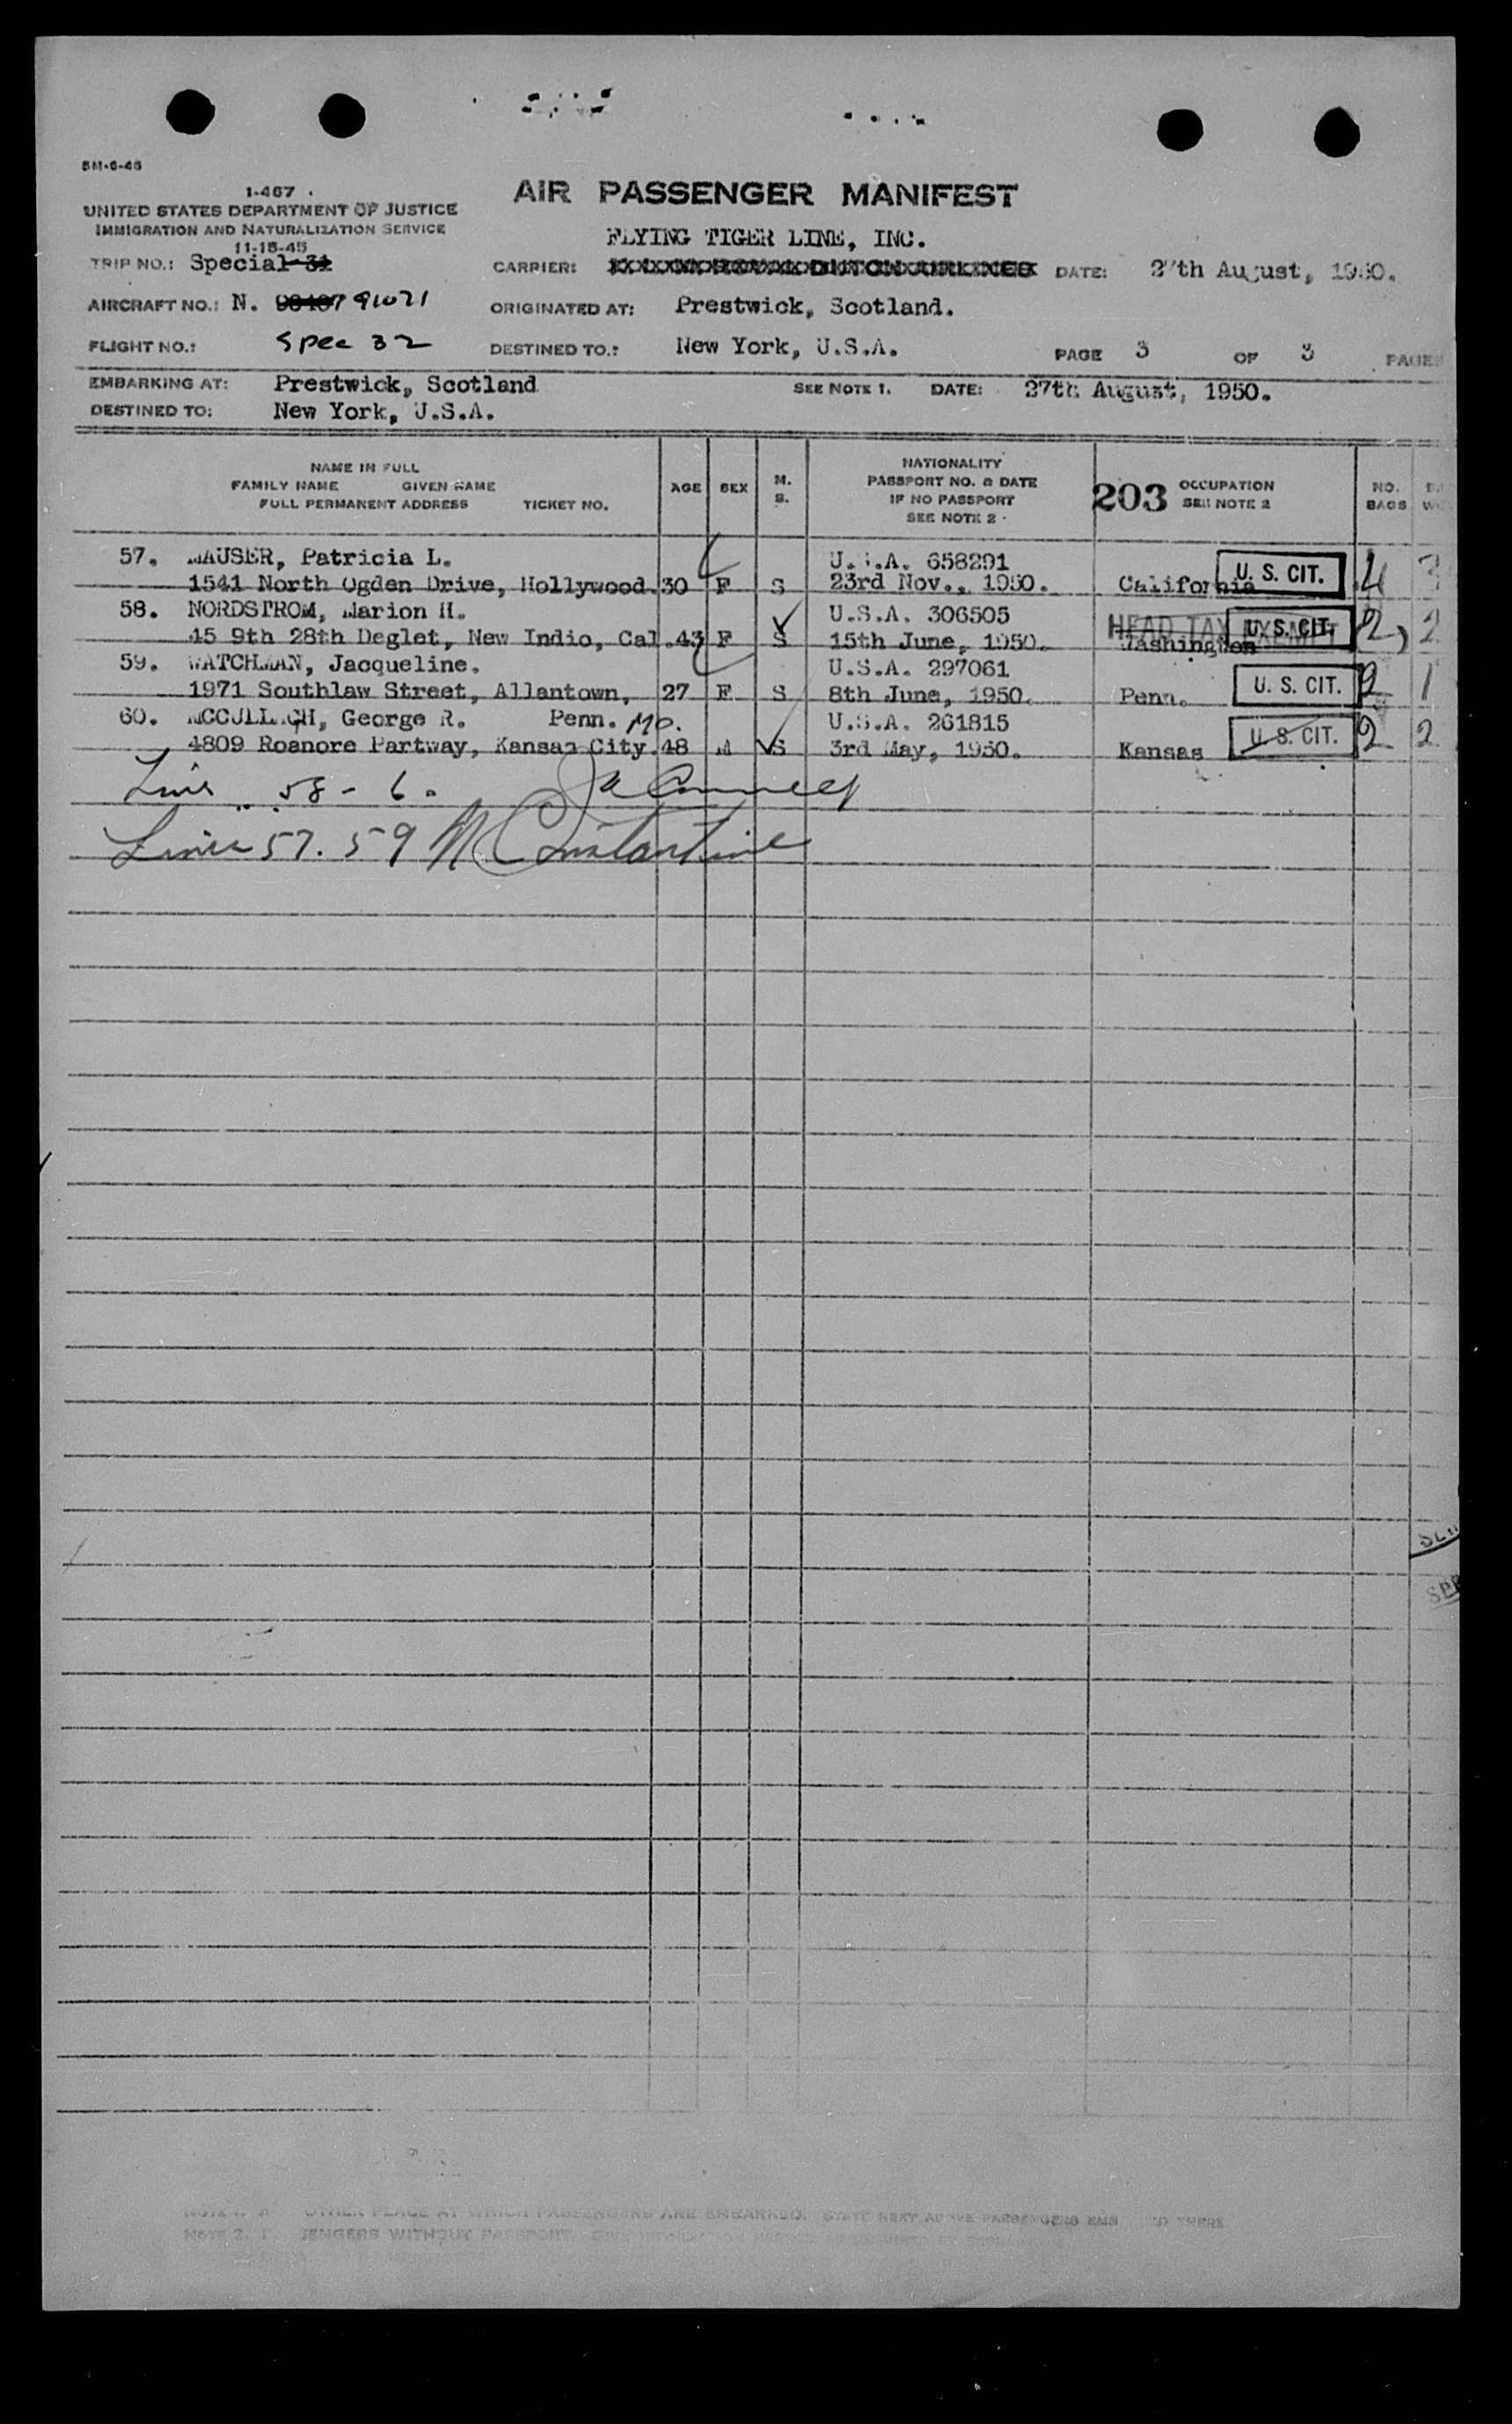 5M-6-46
1-467
UNITED STATES DEPARTMENT OF JUSTICE
IMMIGRATION AND NATURALIZATION SERVICE
11-15-45
AIR PASSENGER MANIFEST
FLYING TIGER LINE, INC.
TRIP NO.: Special 31
CARRIER:
DATE: 27th August, 1950.
AIRCRAFT NO.: N. 91021
ORIGINATED AT: Prestwick, Scotland.
FLIGHT NO.: Spec 32
DESTINED TO.: New York, U.S.A.
PAGE 3 OF 3 PAGES
EMBARKING AT: Prestwick, Scotland
SEE NOTE 1. DATE: 27th August, 1950.
DESTINED TO: New York, U.S.A.
NAME IN FULL
FAMILY NAME GIVEN NAME
FULL PERMANENT ADDRESS TICKET NO.
AGE SEX M. S.
NATIONALITY
PASSPORT NO. & DATE
IF NO PASSPORT
SEE NOTE 2
203 OCCUPATION
SEE NOTE 2
NO. BAGS
57. MAUSER, Patricia L. U.S.A. 658291
1541 North Ogden Drive, Hollywood. 30 F S 23rd Nov., 1950. California U. S. CIT. 4 3
58. NORDSTROM, Marion H. U.S.A. 306505
45 9th 28th Deglet, New Indio, Cal. 43 F S 15th June, 1950. Washington HEAD TAX EXEMPT U. S. CIT. 2, 2
59. WATCHMAN, Jacqueline. U.S.A. 297061
1971 Southlaw Street, Allantown, 27 F S 8th June, 1950. Penn. U. S. CIT. 2 1
60. MCCULLAGH, George R. Penn. Mo. U.S.A. 261815
4809 Roanore Partway, Kansas City. 48 M S 3rd May, 1950. Kansas U. S. CIT. 2 2
Line 58 - 6.
Lines 57. 59 M Constantine
OTHER PLACE AT WHICH PASSENGERS ARE EMBARKED. STATE NEXT ABOVE PASSENGERS
NOTE 2. WITHOUT PASSPORT.